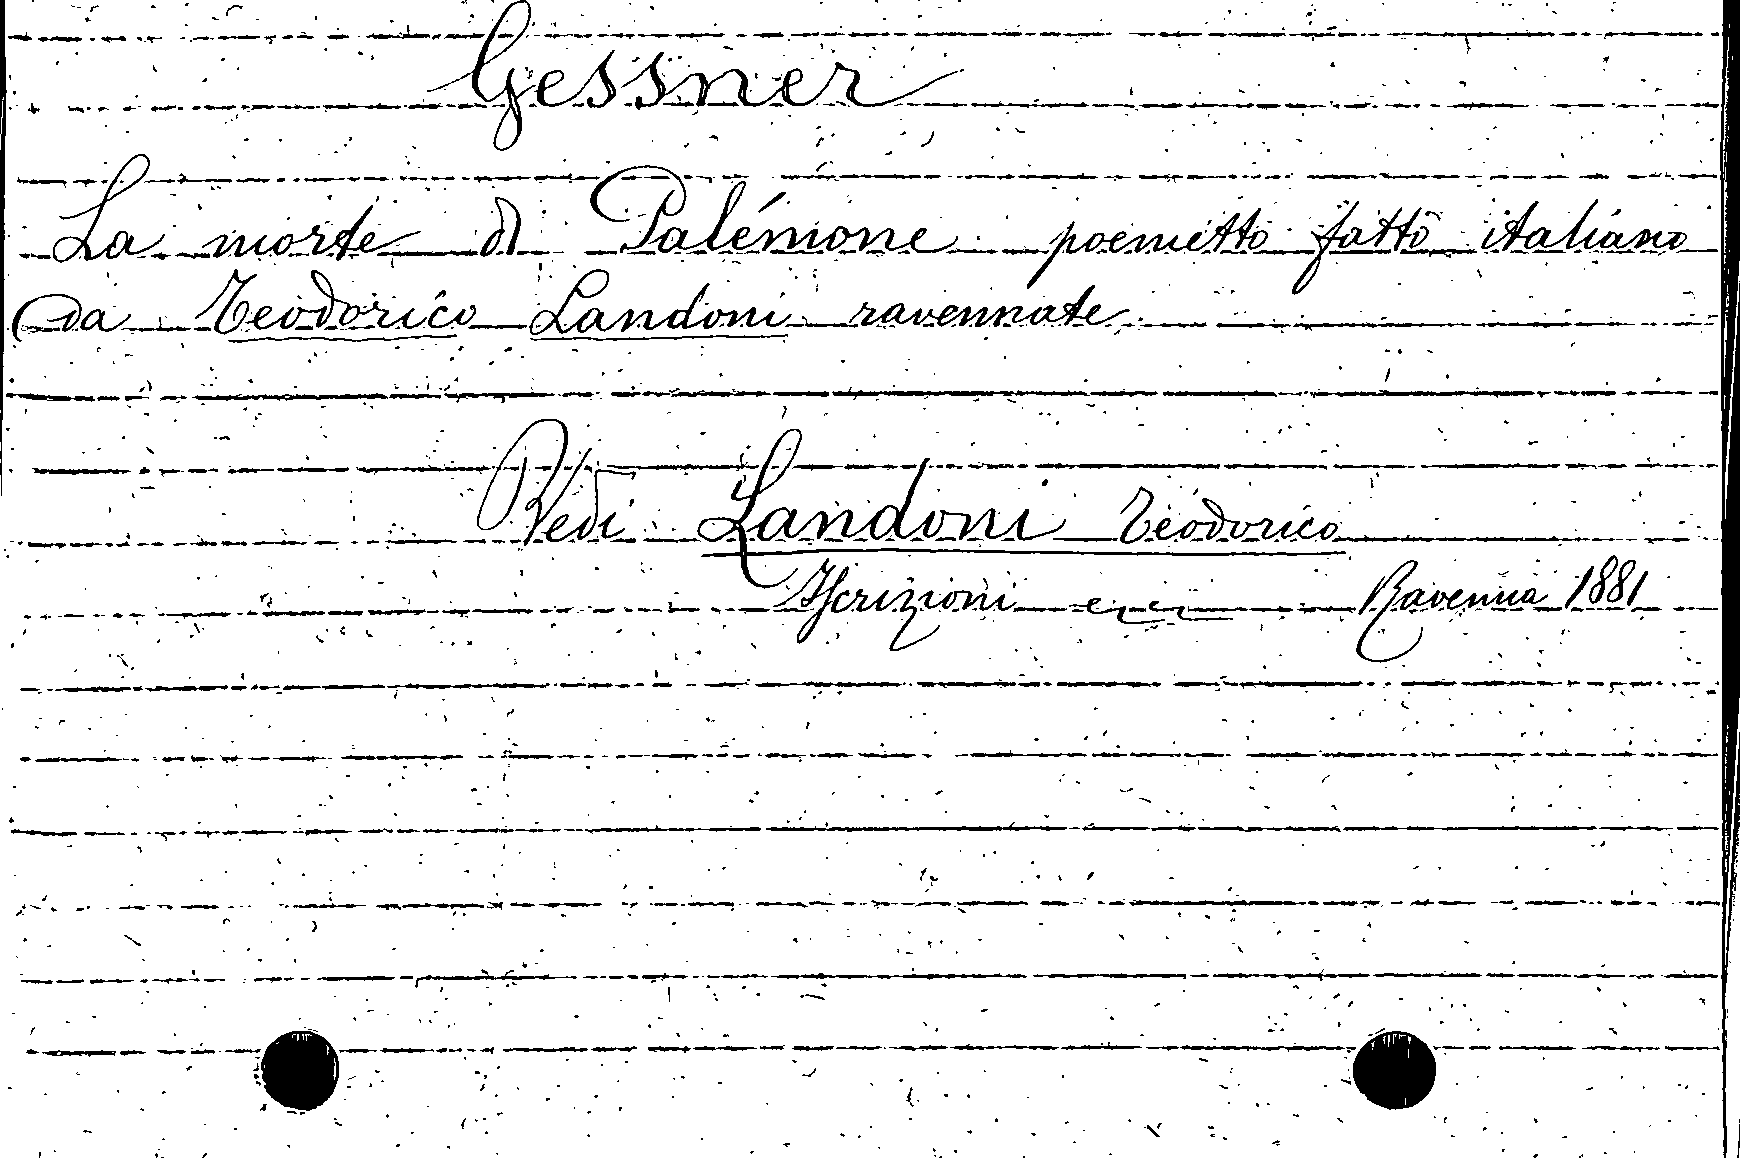 Gessner
La morte di Palémone poemetto fatto italiano
da Teodorico Landoni ravennate
Vedi Landoni Teodorico
Iscrizioni Ravenna 1881